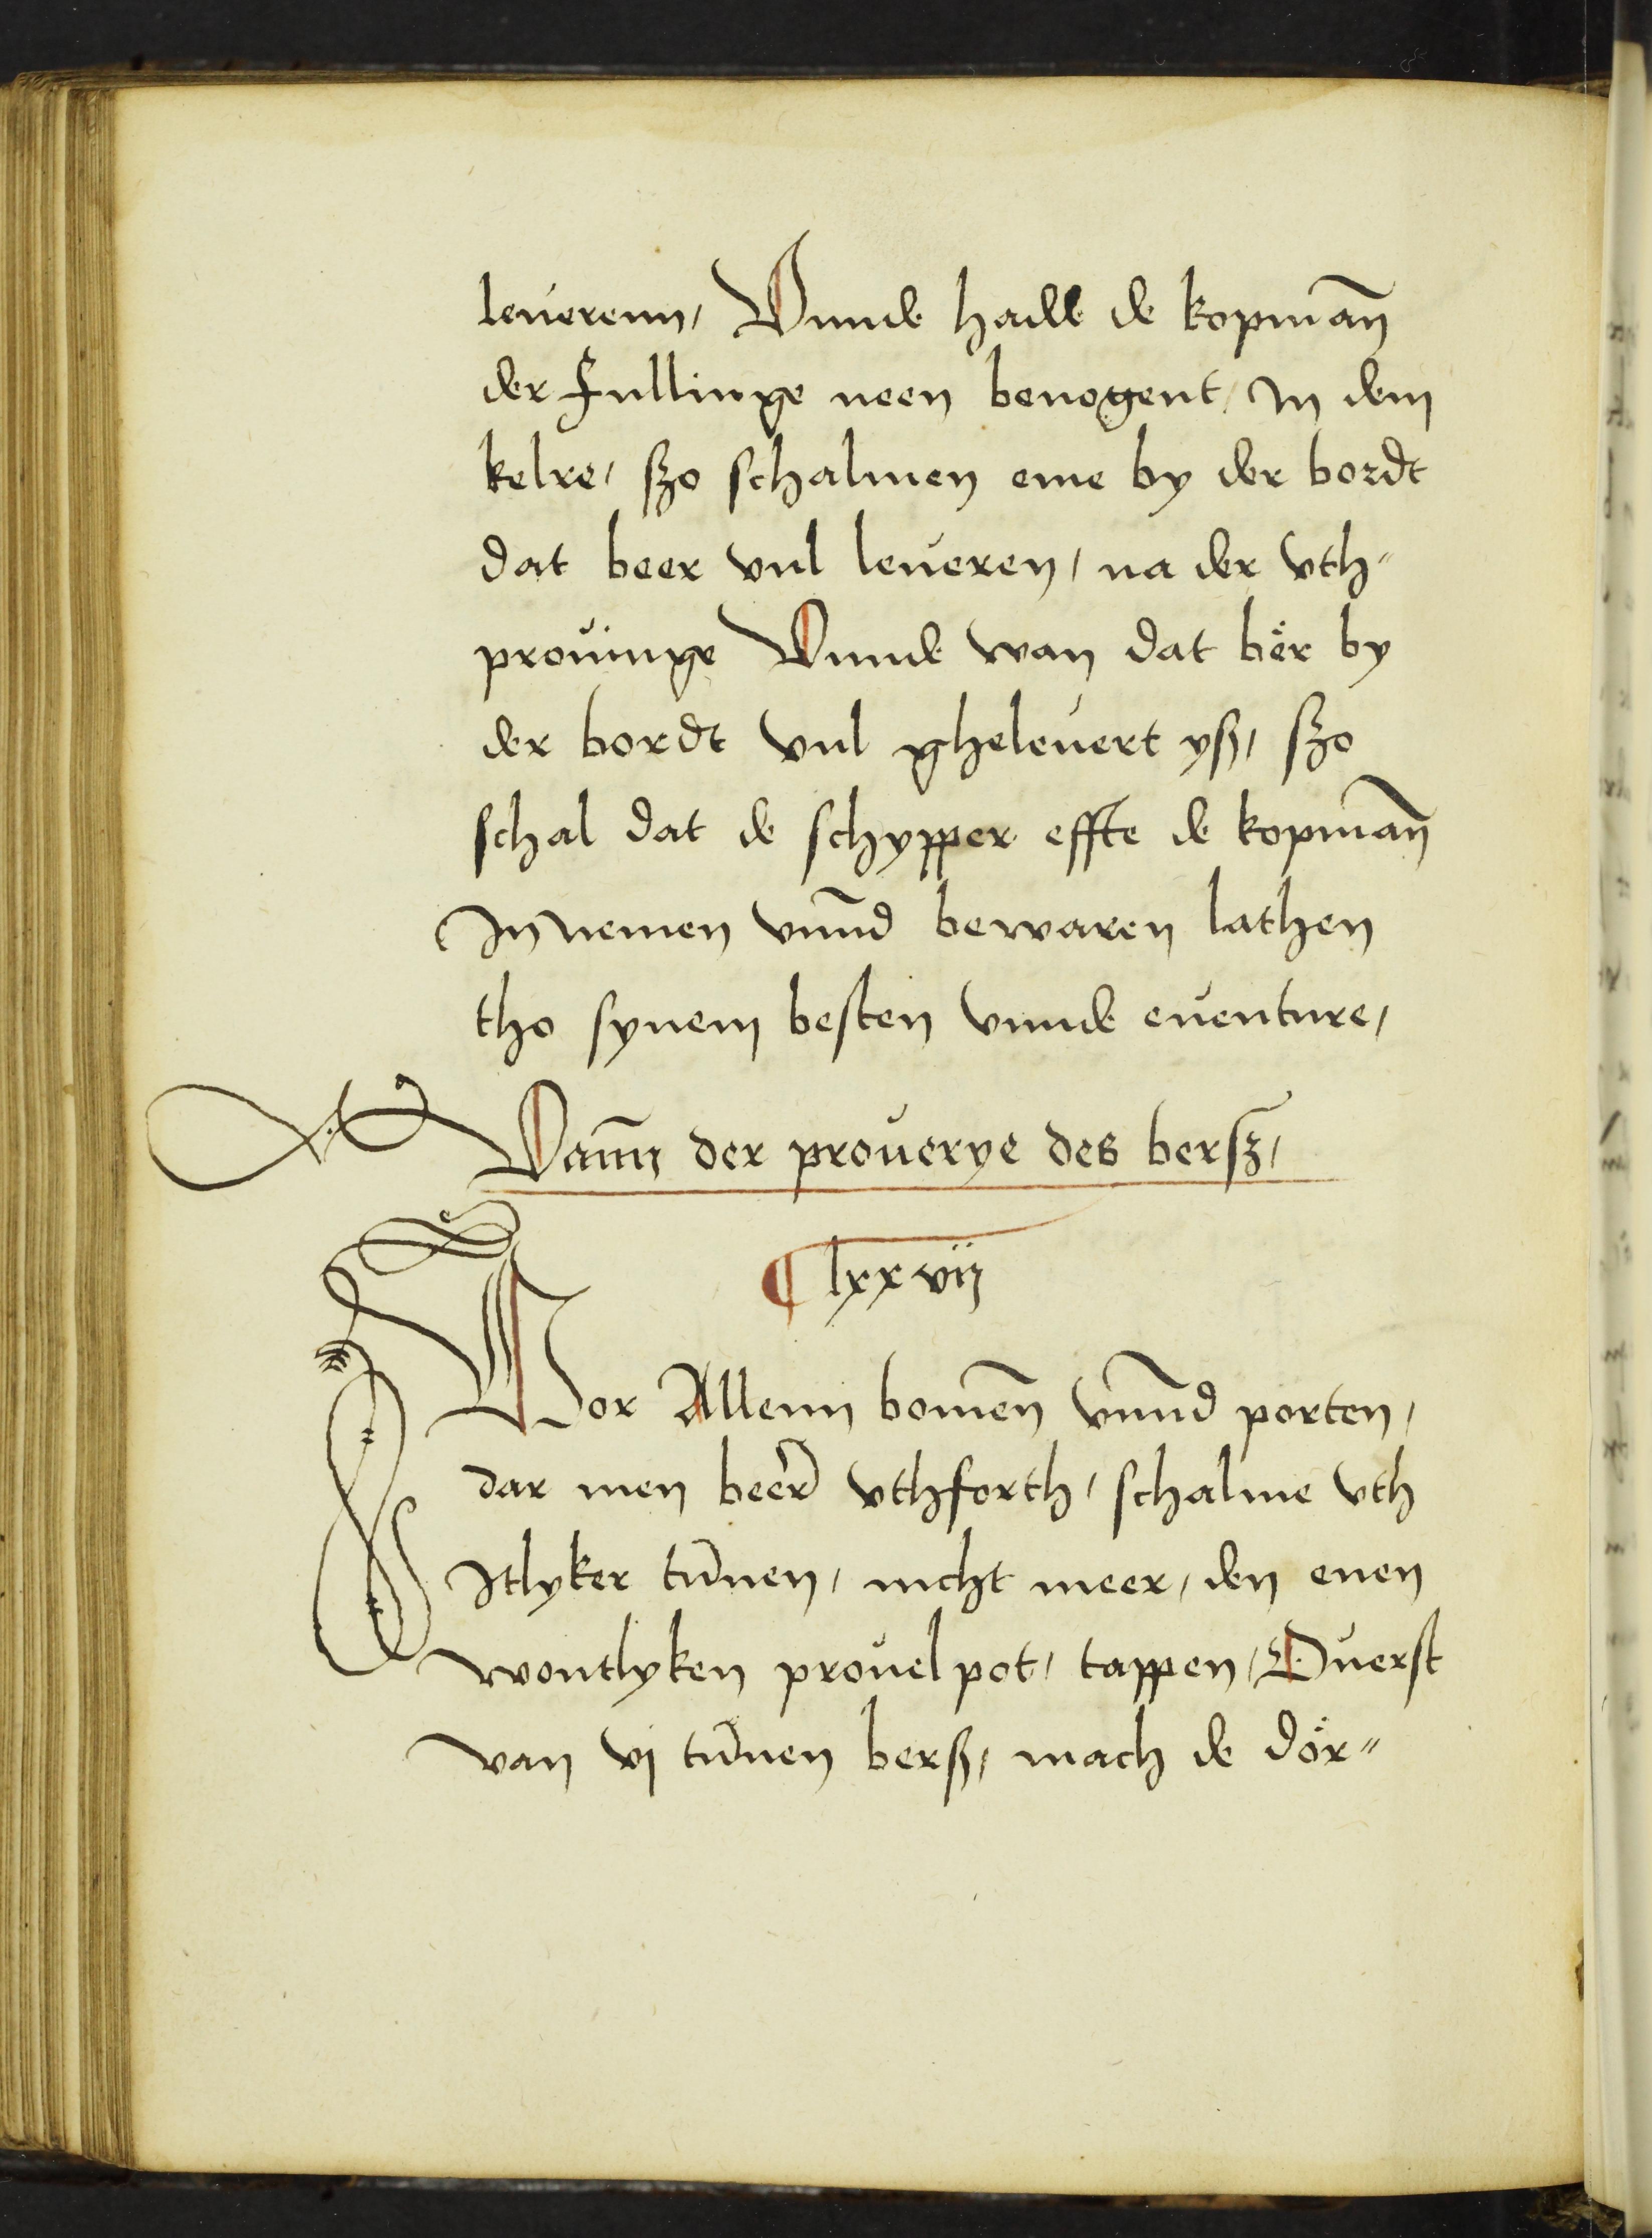 leuerenn, Vnnde hadde de kopman̄
der Fullinge neen benogent, In dem
kelre, szo schalmen eme by der bordt
dat beer vul leueren, na der vth"
prouinge Vnnde wan dat ber by
der bordt vul gheleuert ysz, szo
schal dat de schypper effte de kopman̄
In nemen vnnd̄ bewaren lathen
tho synem besten vnnde euenture,
Vann der prouerye des bersz,
¶ lxxvij
Vor Allenn bomen̄ vnnd̄ porten,
dar men beer̄ vthforth, schalme vth
Itlyker tun̄nen, nicht meer, den enen
wontlyken prouelpot, tappen, Ouerst
van vj tun̄nen bersz, mach de dor"